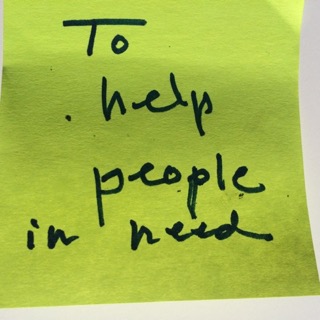 To
help
people
in need